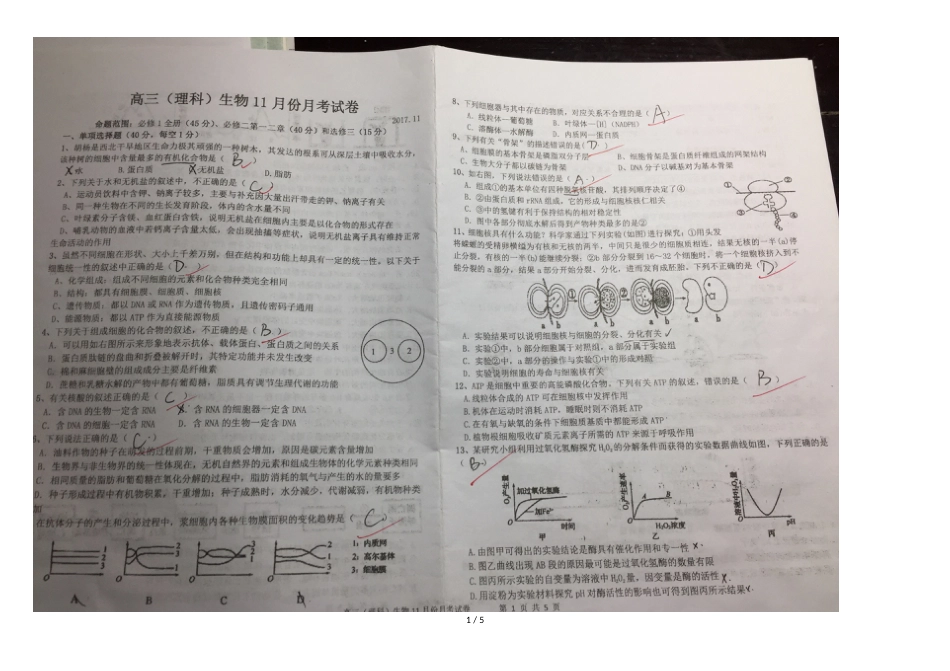 高三（理科）生物11月份月考试卷
2017.11
命题范围：必修1全册（45分）、必修二第一二章（40分）和选修三（15分）
一、单项选择题（40分，每空1分）
1、胡杨是西北干旱地区生命力极其顽强的一种树木，其发达的根系可从深层土壤中吸收水分，
该种树的细胞中含量最多的有机化合物是（ B ）
A.水 B.蛋白质 C.无机盐 D.脂肪
2、下列关于水和无机盐的叙述中，不正确的是（ C ）
A、运动员饮料中含钾、钠离子较多，主要与补充因大量出汗带走的钾、钠离子有关
B、同一种生物在不同的生长发育阶段，体内的含水量不同
C、叶绿素分子含镁、血红蛋白含铁，说明无机盐在细胞内主要是以化合物的形式存在
D、哺乳动物的血液中若钙离子含量太低，会出现抽搐等症状，说明无机盐离子具有维持正常
生命活动的作用
3、虽然不同细胞在形状、大小上千差万别，但在结构和功能上却具有一定的统一性，以下关于
细胞统一性的叙述中正确的是（ D ）
A、化学组成：组成不同细胞的元素和化合物种类完全相同
B、结构：都具有细胞膜、细胞质、细胞核
C、遗传物质：都以DNA或RNA作为遗传物质，且遗传密码子通用
D、能源物质：都以ATP作为直接能源物质
4、下列关于组成细胞的化合物的叙述，不正确的是（ B ）
A. 可以用如右图所示来形象地表示抗体、载体蛋白、蛋白质之间的关系
B. 蛋白质肽链的盘曲和折叠被解开时，其特定功能并未发生改变
C. 棉和麻细胞壁的组成成分主要是纤维素
D. 蔗糖和乳糖水解的产物中都有葡萄糖，脂质具有调节生理代谢的功能
1 3 2
5、有关核酸的叙述正确的是（ C ）
A. 含DNA的生物一定含RNA B. 含RNA的细胞器一定含DNA
C. 含DNA的细胞一定含RNA D. 含RNA的生物一定含DNA
6、下列说法正确的是（ C ）
A. 油料作物的种子在萌发的过程前期，干重物质会增加，原因是碳元素含量增加
B. 生物界与非生物界的统一性体现在，无机自然界的元素和组成生物体的化学元素种类相同
C. 相同质量的脂肪和葡萄糖在氧化分解的过程中，脂肪消耗的氧气与产生的水的量要多
D. 种子形成过程中有机物积累，干重增加；种子成熟时，水分减少，代谢减弱，有机物种类
加
在抗体分子的产生和分泌过程中，浆细胞内各种生物膜面积的变化趋势是（ C ）
1：内质网
2：高尔基体
3：细胞膜
A B C D
高三（理科）生物11月份月考试卷 第 1 页 共 5 页
8、下列细胞器与其中存在的物质，对应关系不合理的是（ A ）
A. 线粒体—葡萄糖 B. 叶绿体—[H]（NADPH）
C. 溶酶体—水解酶 D. 内质网—蛋白质
9、下列有关“骨架”的描述错误的是（ D ）
A、细胞膜的基本骨架是磷脂双分子层 B、细胞骨架是蛋白质纤维组成的网架结构
C、生物大分子都以碳链为骨架 D、DNA分子以碱基对为基本骨架
10、如右图，下列说法错误的是（ A ）
A. 组成①的基本单位有四种脱氧核苷酸，其排列顺序决定了④
B. ②由蛋白质和rRNA组成，它的形成与细胞核核仁相关
C. ③中的氢键有利于保持结构的相对稳定性
D. 图中各部分彻底水解后得到产物种类最多的是②
① ② ③ ④
11、细胞核具有什么功能？科学家通过下列实验(如图)进行探究：①用头发
将蝾螈的受精卵横缢为有核和无核的两半，中间只是很少的细胞质相连，结果无核的一半(a)停
止分裂，有核的一半(b)能继续分裂；②b部分分裂到16～32个细胞时，将一个细胞核挤入到不
能分裂的a部分，结果a部分开始分裂、分化，进而发育成胚胎，下列不正确的是（ D ）
① ②
a b a b a b
A. 实验结果可以说明细胞核与细胞的分裂、分化有关
B. 实验①中，b部分细胞属于对照组，a部分属于实验组
C. 实验②中，a部分的操作与实验①中的形成对照
D. 实验说明细胞的寿命与细胞核有关
12、ATP是细胞中重要的高能磷酸化合物。下列有关ATP的叙述，错误的是（ B ）
A.线粒体合成的ATP可在细胞核中发挥作用
B.机体在运动时消耗ATP，睡眠时则不消耗ATP
C.在有氧与缺氧的条件下细胞质基质中都能形成ATP
D.植物根细胞吸收矿质元素离子所需的ATP来源于呼吸作用
13、某研究小组利用过氧化氢酶探究H₂O₂的分解条件而获得的实验数据曲线如图，下列正确的是
（ B ）
O₂产生量 加过氧化氢酶 加Fe³⁺ O 时间 甲
O₂产生速率 A B O H₂O₂浓度 乙
溶液中H₂O₂量 O pH 丙
A.由图甲可得出的实验结论是酶具有催化作用和专一性
B.图乙曲线出现AB段的原因最可能是过氧化氢酶的数量有限
C.图丙所示实验的自变量为溶液中H₂O₂量，因变量是酶的活性
D.用淀粉为实验材料探究pH对酶活性的影响也可得到图丙所示结果
1 / 5